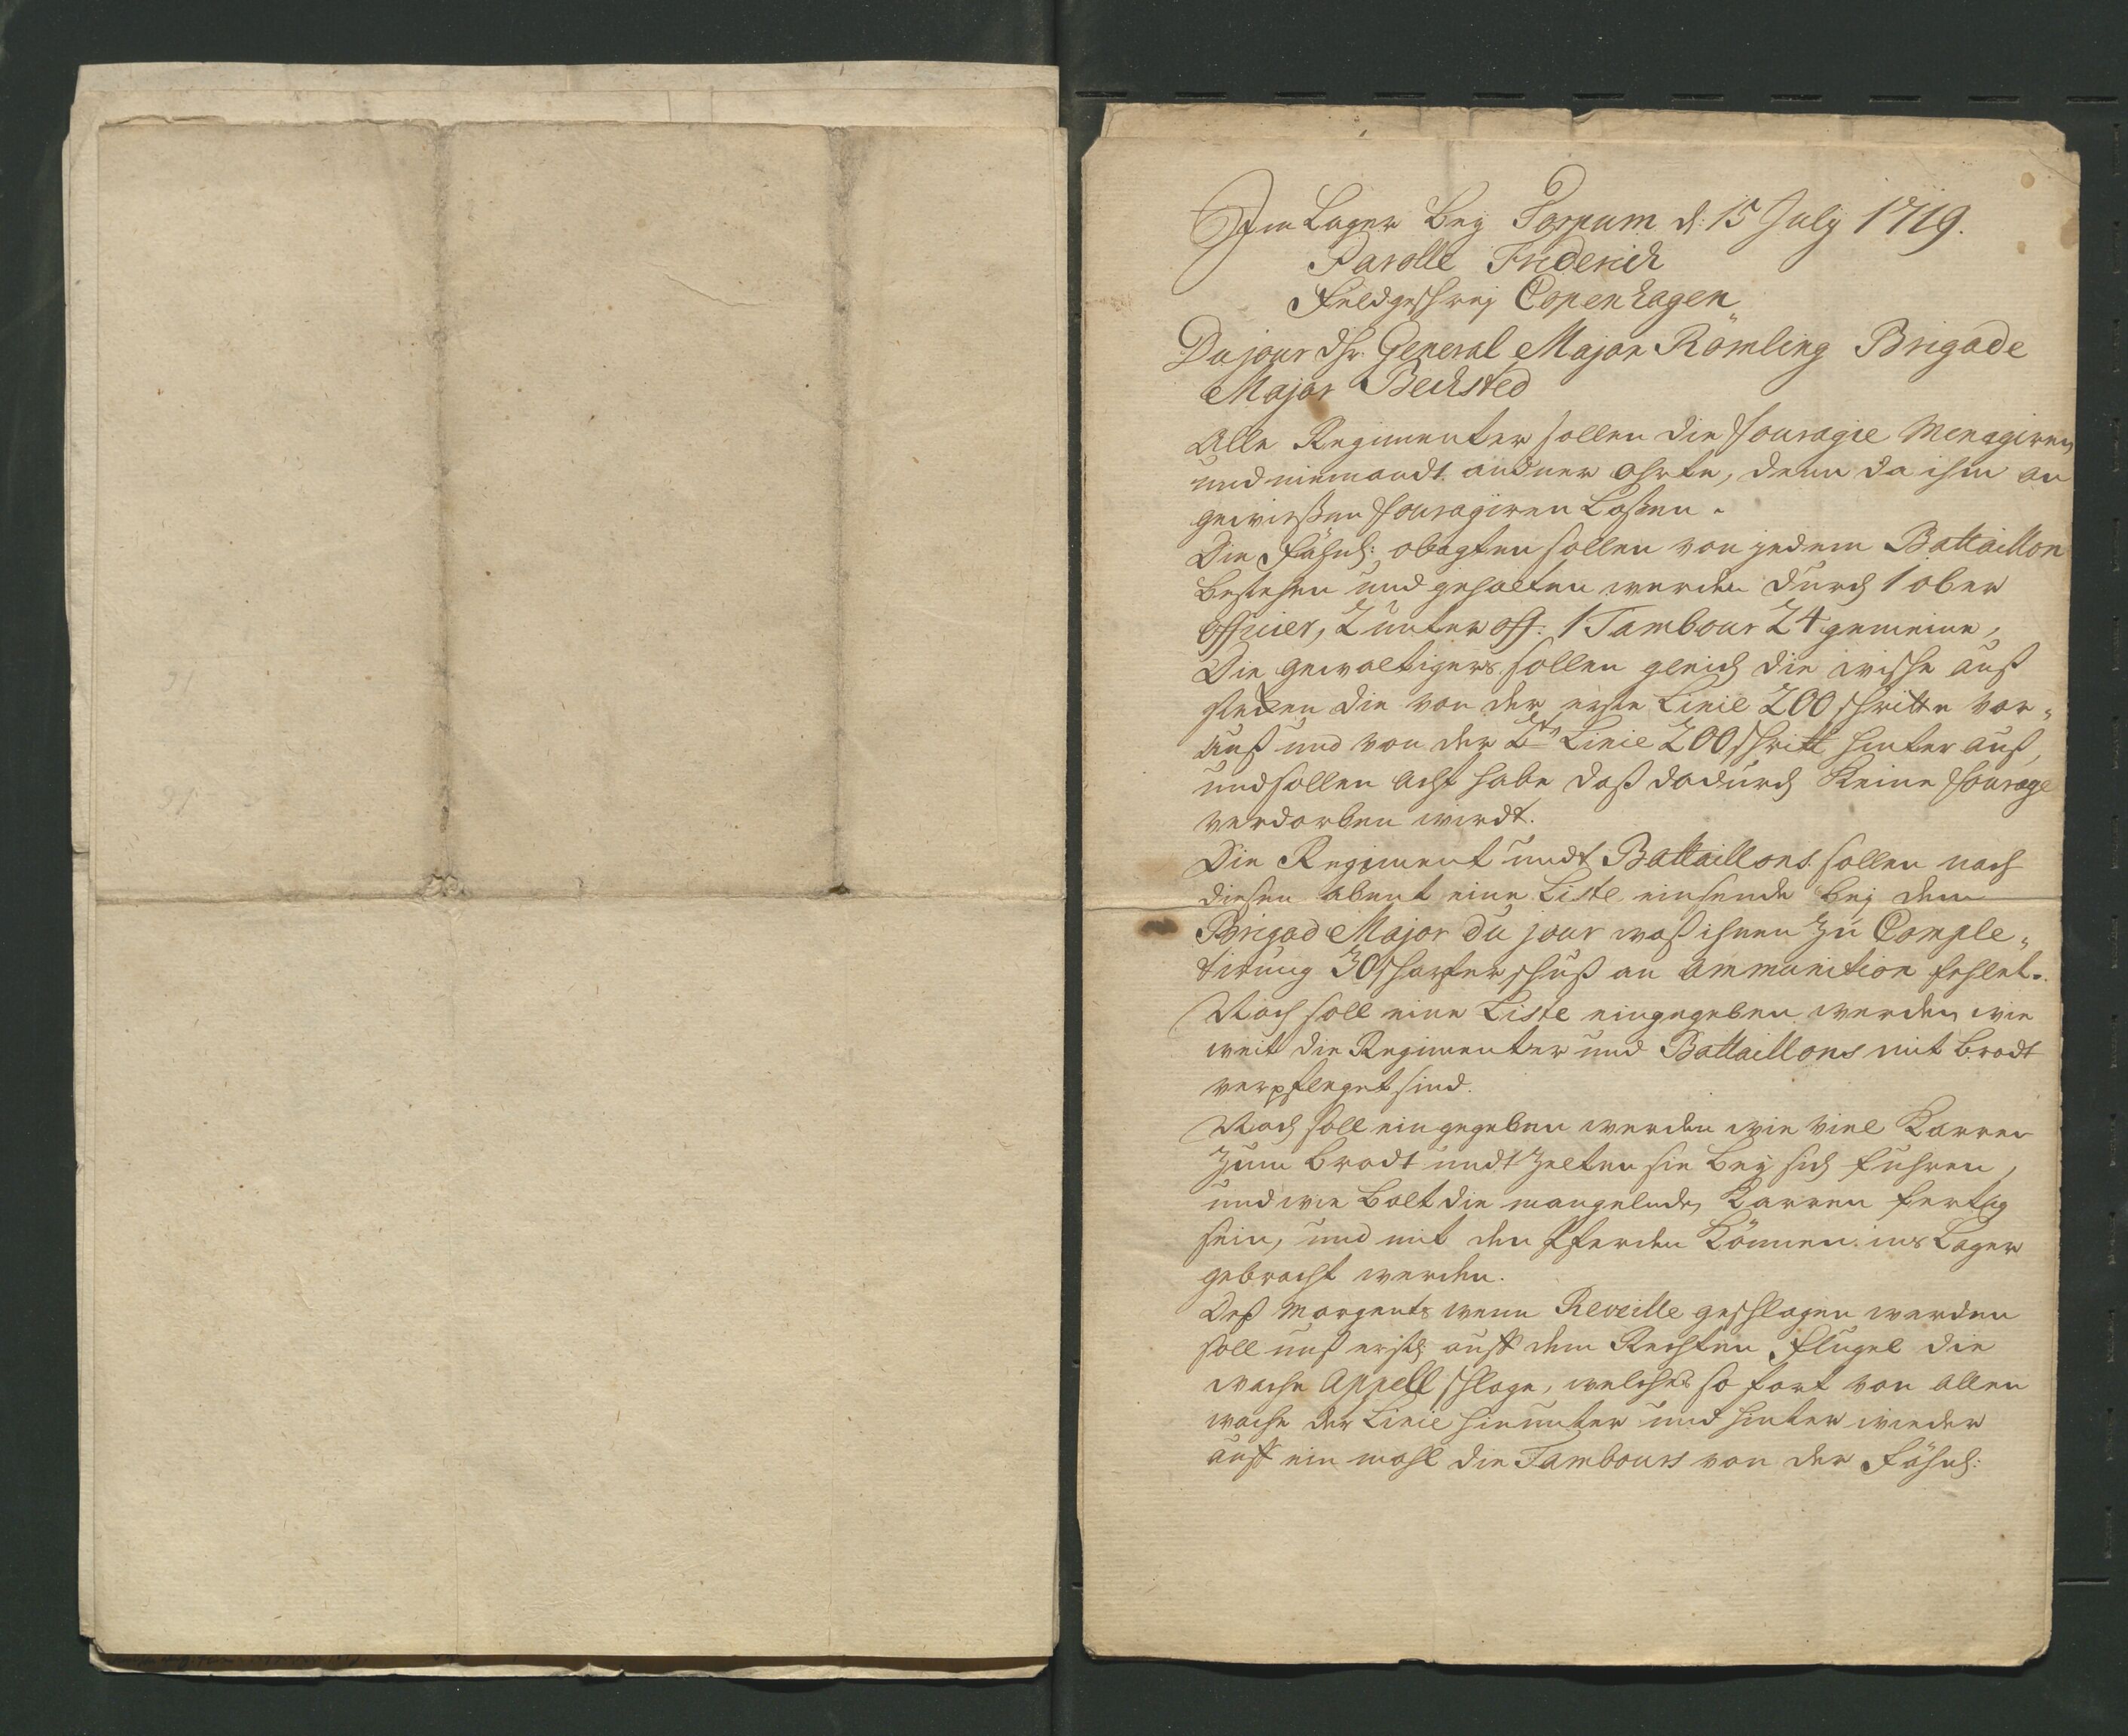 Im Lager bey Torpum d: 15 July 1719.
Parolle Friderich
Feldgeschrey Copenhagen
Du jour Hr. General Major Römling Brigade
Major Bechsted
Alle Regimenter sollen die fouragie menagiren
und niemandt andner ohrte, denn da ihm an
gewießen fouragiren Laßen.
Die Fähnd: sollen von jedem Battaillon
bestehen und gehalten werden durch 1 ober
officier, 2 unter off. 1 Tambour 24 gemeine,
Die gewaltigers sollen gleich die wische auß
steken die von der erste Linie 200 schritte vor„
auß und von der 2ten Linie 200 schritt hinter auß,
und sollen acht habe daß dadurch Keine fourage
verdorben wirdt.
Die Regiment undt Battaillons sollen noch
diesen abent eine Liste einsende bey dem
Brigad Major du jour waß ihnen zu Comple„
tirung 30 scharfer schuß an ammunition fehlet.
Noch soll eine Liste eingegeben werden wie
weit die Regimenter und Battaillons mit brodt
verpfleget sind.
Noch soll eingegeben werden wie viel Karren
zum brodt undt Zelten sie bey sich fuhren,
und wie balt die mangelnde Karren fertig
sein, und mit den Pferden Können ins Lager
gebracht werden.
Deß morgents wenn Reveille geschlagen werden
soll muß erstl: auff dem Rechten Flugel die
wache Appell schlage, welches so fort von allen
wache der Linie hinunter und hinter wieder
auff ein mahl die Tambours von der Fähnd: